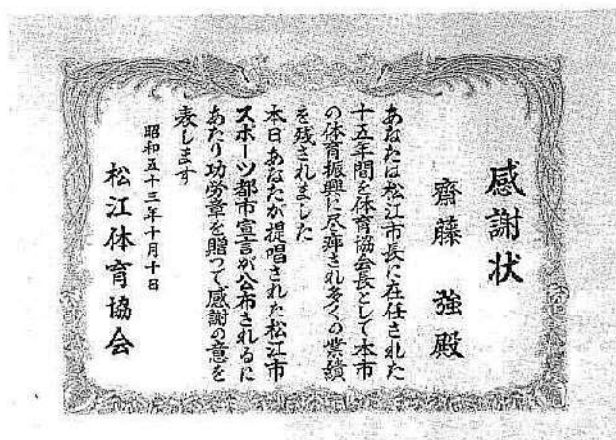 感謝状
齋藤 強殿
あなたは松江市長に在任された
十五年間を体育協会長として本市
の体育振興に尽粹され多くの業績
を残されました
本日あなたが提唱された松江市
スポーツ都市宣言が公布されるに
あたり功労章を贈って感謝の意を
表します
昭和五十三年十月十日
松江体育協会